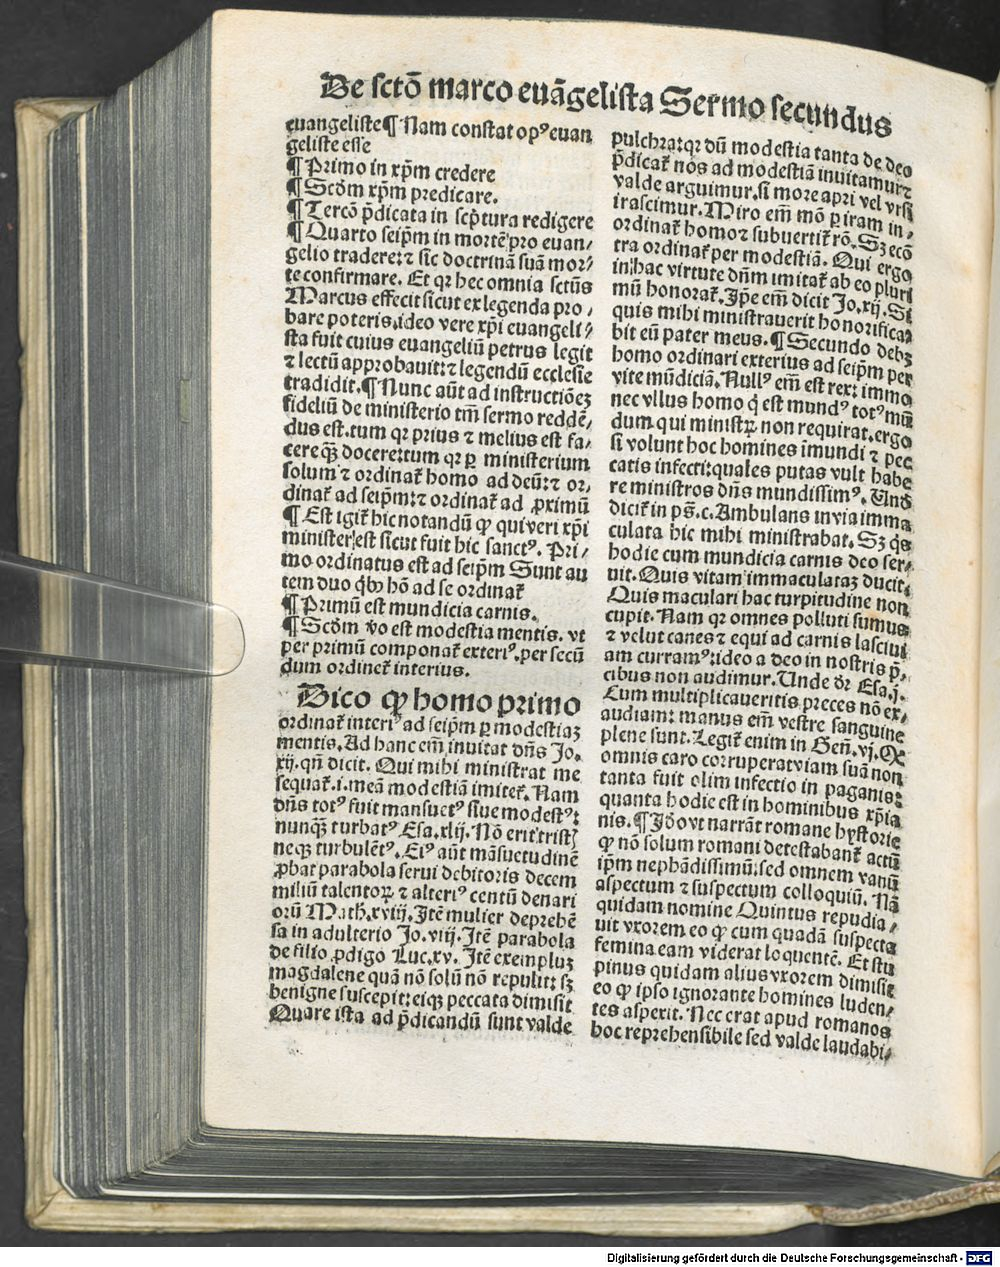 De sctõ marco euãgelista Sermo secundus
euangeliste¶ Nam constat opꝰ euan
geliste esse
¶ Primo in xp̃m credere
¶ Scd̃m xp̃m predicare.
¶ Tercõ p̃dicata in scp̃tura redigere
¶ Quarto seip̃m in mortẽ pro euan⸗
gelio tradere:ꝛ sic doctrinã suã mor⸗
te confirmare. Et qꝛ hec omnia sctũs
Marcus effecit sicut ex legenda pro⸗
bare poteris.ideo vere xp̃i euangeli⸗
sta fuit cuius euangeliũ petrus legit
ꝛ lectũ approbauit:ꝛ legendũ ecclesie
tradidit.¶ Nunc aũt ad instructiõeꝫ
fideliũ de ministerio tm̃ sermo reddẽ⸗
dus est.tum qꝛ prius ꝛ melius est fa⸗
cere qꝫ̃ docere:tum qꝛ ꝑ ministerium
solum ꝛ ordinat̃ homo ad deũ:ꝛ or⸗
dinat̃ ad seip̃m:ꝛ ordinat̃ ad ꝓximũ
¶ Est igit̃ hic notandũ ꝙ qui veri xp̃i
minister est sicut fuit hic sanctꝰ. Pri⸗
mo ordinatus est ad seip̃m Sunt au
tem duo q̃bꝰ hõ ad se ordinat̃
¶ Primũ est mundicia carnis.
¶ Scd̃m ṽo est modestia mentis. vt
per primũ componat̃ exteriꝰ.per secũ
dum ordinet̃ interius.
Dico ꝙ homo primo
ordinat̃ interiꝰ ad seip̃m ꝑ modestiaꝫ
mentis. Ad hanc em̃ inuitat dñs Jo.
xij. qñ dicit. Qui mihi ministrat me
sequat̃.i.meã modestiã imitet̃. Nam
dñs totꝰ fuit mansuetꝰ siue modestꝰ:
nunqꝫ̃ turbatꝰ. Esa.xlij. Nõ erit trist̃
neqꝫ turbulẽtꝰ. Eiꝰ aũt mãsuetudinẽ
ꝓbat parabola serui debitoris decem
miliũ talentoꝝ ꝛ alteriꝰ centũ denari
orũ Math.xviij. Jtẽ mulier deprehẽ
sa in adulterio Jo.viij. Jtẽ parabola
de filio ꝓdigo Luc.xv. Jtẽ exempluꝫ
magdalene quã nõ solũ nõ repulit: sꝫ
benigne suscepit:eiqꝫ peccata dimisit
Quare ista ad p̃dicandũ sunt valde
pulchra:qꝛ dũ modestia tanta de deo
p̃dicat̃ nos ad modestiã inuitamurꝛ
valde arguimur.si more apri vel vrsi
irascimur. Miro em̃ mõ ꝑ iram in⸗
ordinat̃ homo ꝛ subuertit̃ rõ. Sꝫ ecõ
tra ordinat̃ per modestiã. Qui ergo
in hac virtute dñm imitat̃ ab eo pluri
mũ honorat̃. Jp̃e em̃ dicit Jo.xij. Si
quis mihi ministrauerit honorificaa
bit eũ pater meus. ¶ Secundo debꝫ
homo ordinari exterius ad seip̃m per
vite mũdiciã. Nullꝰ em̃ est rex: immo
nec vllus homo q̃ est mundꝰ totꝰ mũ
dum qui ministrꝝ non requirat.ergo
si volunt hoc homines ĩmundi ꝛ pec
catis infecti:quales putas vult habe
re ministros dñs mundissimꝰ. Und̃
dicit̃ in ps̃.c. Ambulans in via imma
culata hic mihi ministrabat. Sꝫ q̃s
hodie cum mundicia carnis deo ser⸗
uit. Quis vitam immaculataꝫ ducit.
Quis maculari hac turpitudine non
cupit. Nam qꝛ omnes polluti sumus
ꝛ velut canes ꝛ equi ad carnis lasciui
am curramꝰ:ideo a deo in nostris p̃⸗
cibus non audimur. Unde dr̃ Esa.j.
Cum multiplicaueritis preces nõ ex⸗
audiam: manus em̃ vestre sanguine
plene sunt. Legit̃ enim in Geñ.vj. Qꝛ
omnis caro corruperat viam suã non
tanta fuit olim infectio in paganis:
quanta hodie est in hominibus xp̃ia
nis. ¶ Jd̃o vt narrãt romane hystorie
ꝙ nõ solum romani detestabant̃ actũ
ip̃m nephãdissimũ:sed omnem vanũ
aspectum ꝛ suspectum colloquiũ. Nã
quidam nomine Quintus repudia⸗
uit vxorem eo ꝙ cum quadã suspecta
femina eam viderat loquentẽ. Et stu
pinus quidam alius vxorem dimisit
eo ꝙ ipso ignorante homines luden⸗
tes aspexit. Nec erat apud romanos
hoc reprehensibile sed valde laudabi⸗
Digitalisierung gefördert durch die Deutsche Forschungsgemeinschaft - DFG